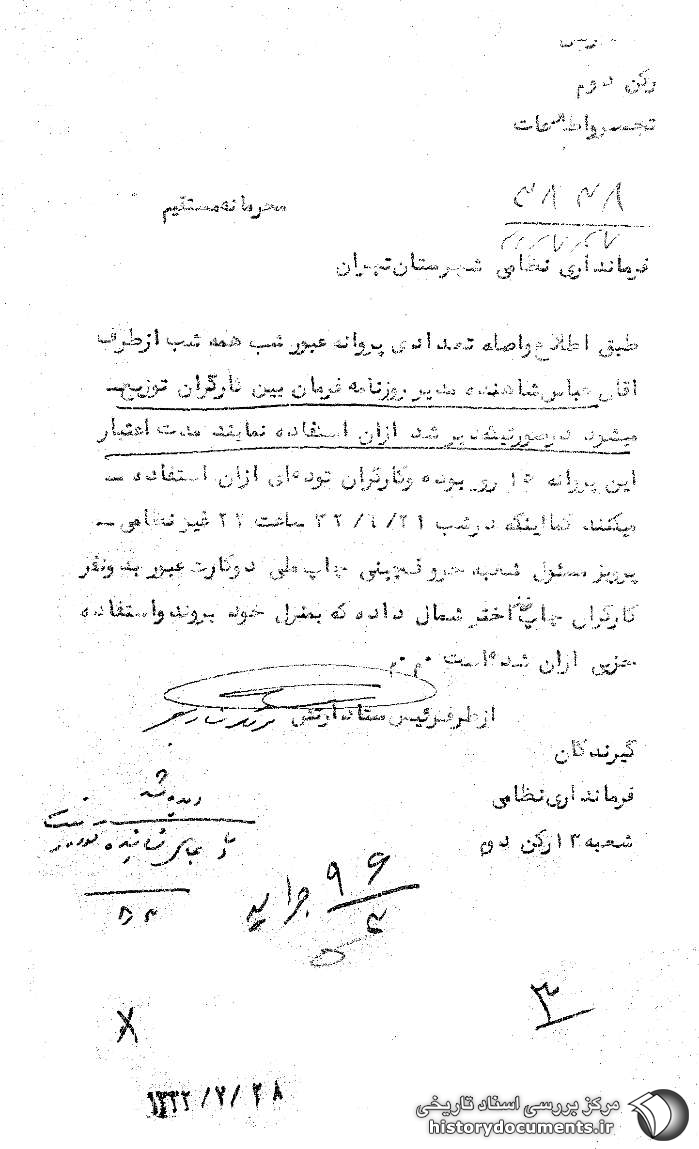 رکن دوم
تجسس و اطلاعات
محرمانه مستقیم
فرمانداری نظامی شهرستان تهران
طبق اطلاع واصله تعدادی پروانه عبور شب همه شب از طرف
آقای عباس شاهنده مدیر روزنامه فرمان بین کارگران توزیع
میشود درصورتیکه دیر شد ازان استفاده نمایند مدت اعتبار
این پروانه ۱۵ روز بوده وکارگران توده‌ای ازان استفاده
میکنند کما اینکه درشب ۳۲/۶/۲۱ ساعت ۲۲ غیر نظامی
پرویز مسئول شعبه حروفچینی چاپ ملی دوکارت عبور بدونفر
کارگران چاپ اختر شمال داده که بمنزل خود بروند واستفاده
حزبی ازان شده است
از طرف رئیس ستاد ارتش
گیرندگان
فرمانداری نظامی
شعبه ۱۳ رکن دوم
دیده شد
عباس شاهنده
۸۳
جراید ۹۶
۳
۳
۱۳۳۲/۷/۲۸
مرکز بررسی اسناد تاریخی
historydocuments.ir